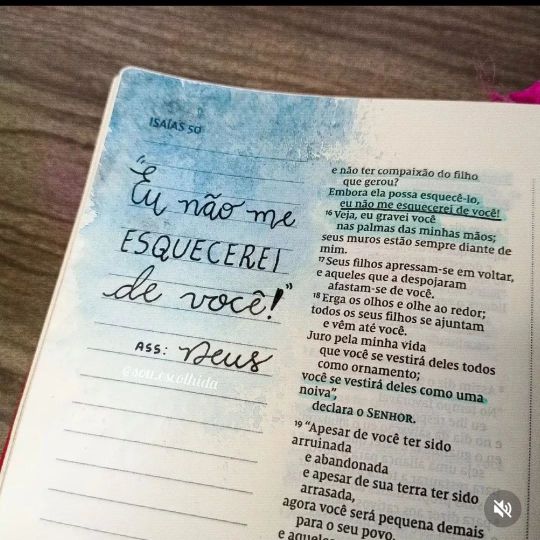 ISAÍAS 50
"Eu não me
ESQUECEREI
de você!"
ASS: Deus
@sou.escolhida
e não ter compaixão do filho
que gerou?
Embora ela possa esquecê-lo,
eu não me esquecerei de você!
16 Veja, eu gravei você
nas palmas das minhas mãos;
seus muros estão sempre diante de
mim.
17 Seus filhos apressam-se em voltar,
e aqueles que a despojaram
afastam-se de você.
18 Erga os olhos e olhe ao redor;
todos os seus filhos se ajuntam
e vêm até você.
Juro pela minha vida
que você se vestirá deles todos
como ornamento;
você se vestirá deles como uma
noiva",
declara o SENHOR.
19 "Apesar de você ter sido
arruinada
e abandonada
e apesar de sua terra ter sido
arrasada,
agora você será pequena demais
para o seu povo,
e aqueles